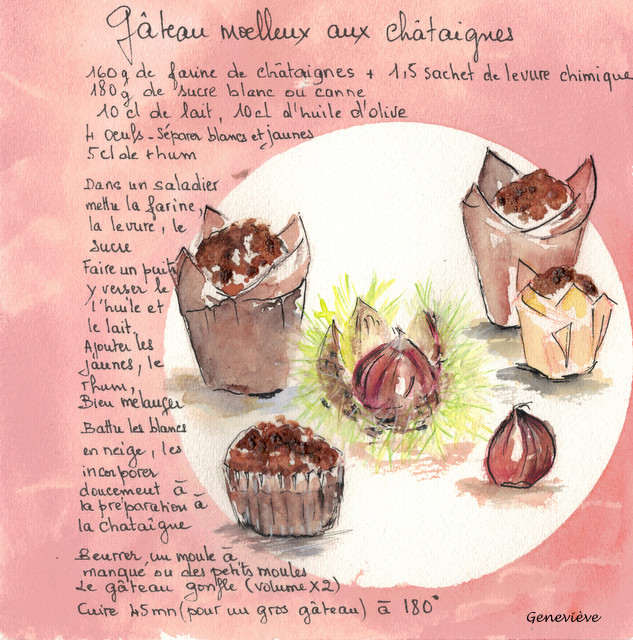 Gâteau moelleux aux châtaignes
160g de farine de châtaignes + 1,5 sachet de levure chimique
180g de sucre blanc ou canne
10 cl de lait, 10cl d'huile d'olive
4 oeufs - Séparer blancs et jaunes
5cl de rhum
Dans un saladier
mettre la farine,
la levure, le
sucre
Faire un puits
y verser le
l'huile et
le lait,
Ajouter les
jaunes, le
rhum,
Bien mélanger
Battre les blancs
en neige, les
incorporer
doucement à
la préparation à
la chataîgne
Beurrer un moule à
manqué ou des petits moules
Le gâteau gonfle (volume x2)
Cuire 45mn (pour un gros gâteau) à 180°
Geneviève